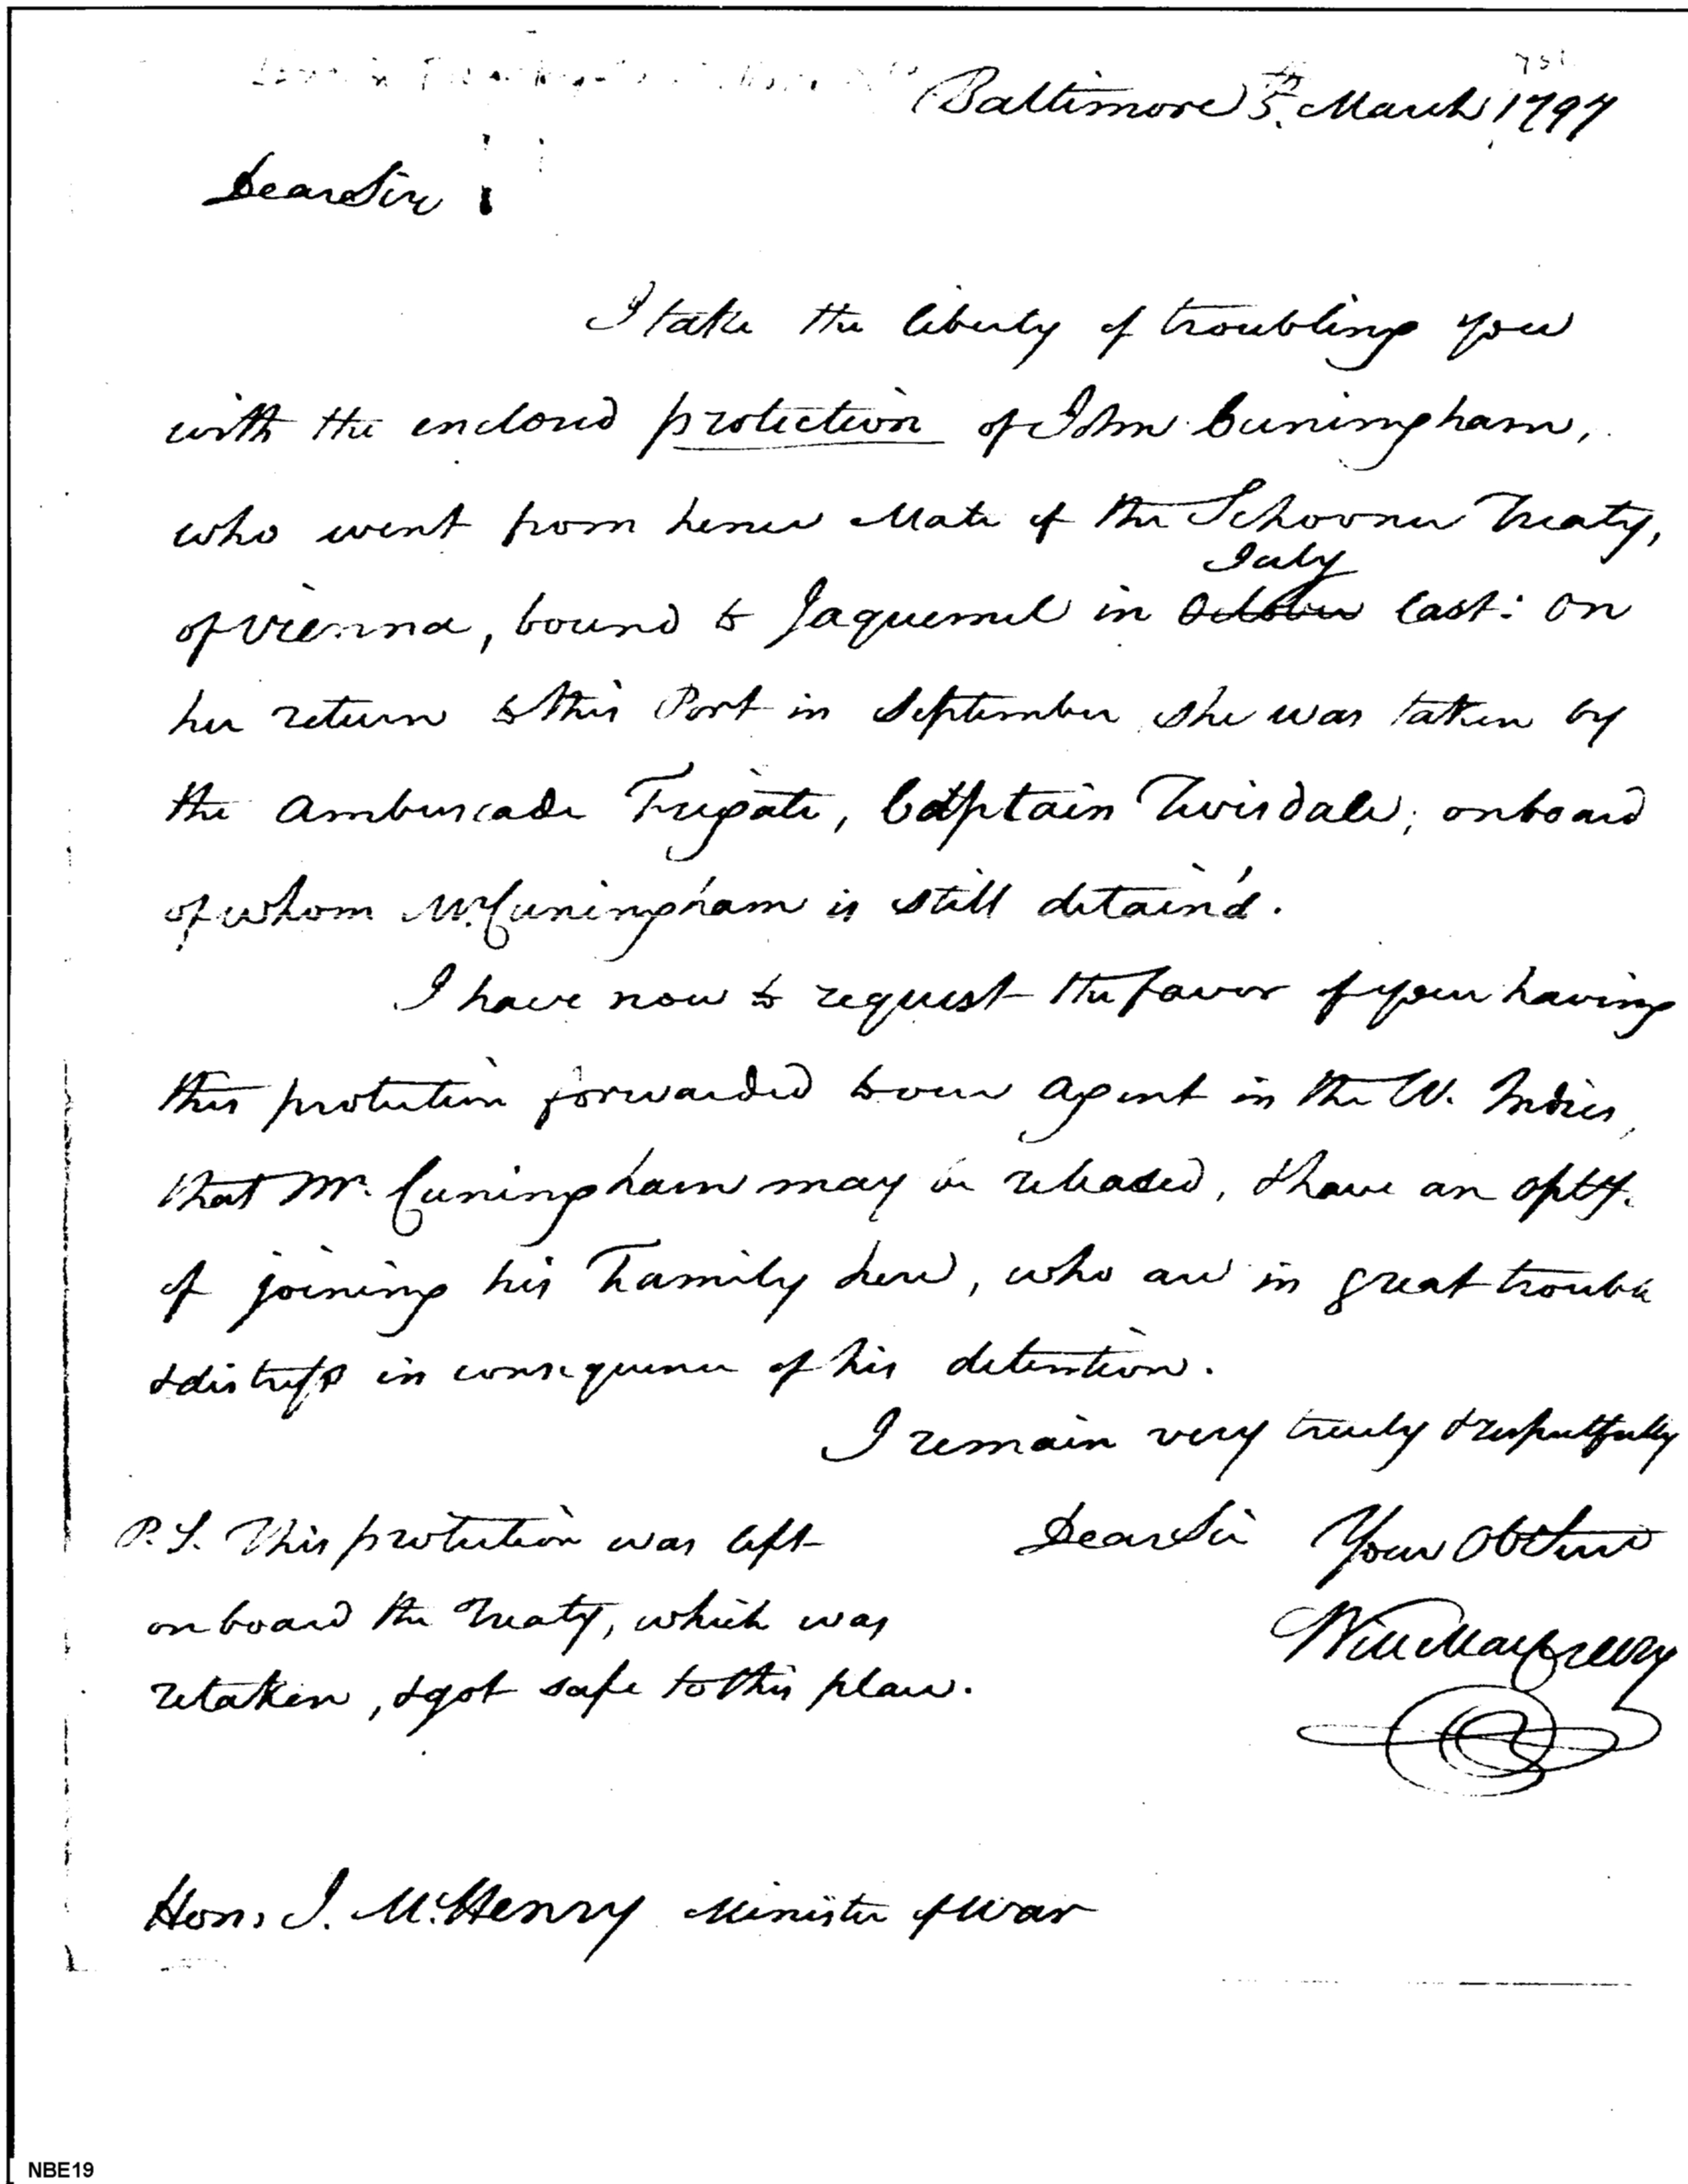 Baltimore 5th. March 1797
Dear Sir
I take the liberty of troubling you
with the enclosed protection of John Cuningham,
who went from hence Mate of the Schooner Treaty,
July
of Vienna, bound to Jaquemel in October last: on
her return to this Port in September she was taken by
the Ambuscade Frigate, Captain Twisdale; onboard
of whom Mr. Cuningham is still detain'd.
I have now to request the favor of your having
this protection forwarded to our Agent in the W. Indies,
that Mr. Cuningham may be released, & have an opty.
of joining his Family here, who are in great trouble
& distress in consequence of his detention.
I remain very truly & respectfully
Dear Sir Your Obt Servt
Will MacCreery
P.S. This protection was left
onboard the Treaty, which was
retaken, & got safe to this place.
Hon. J. McHenry Minister of War
NBE19